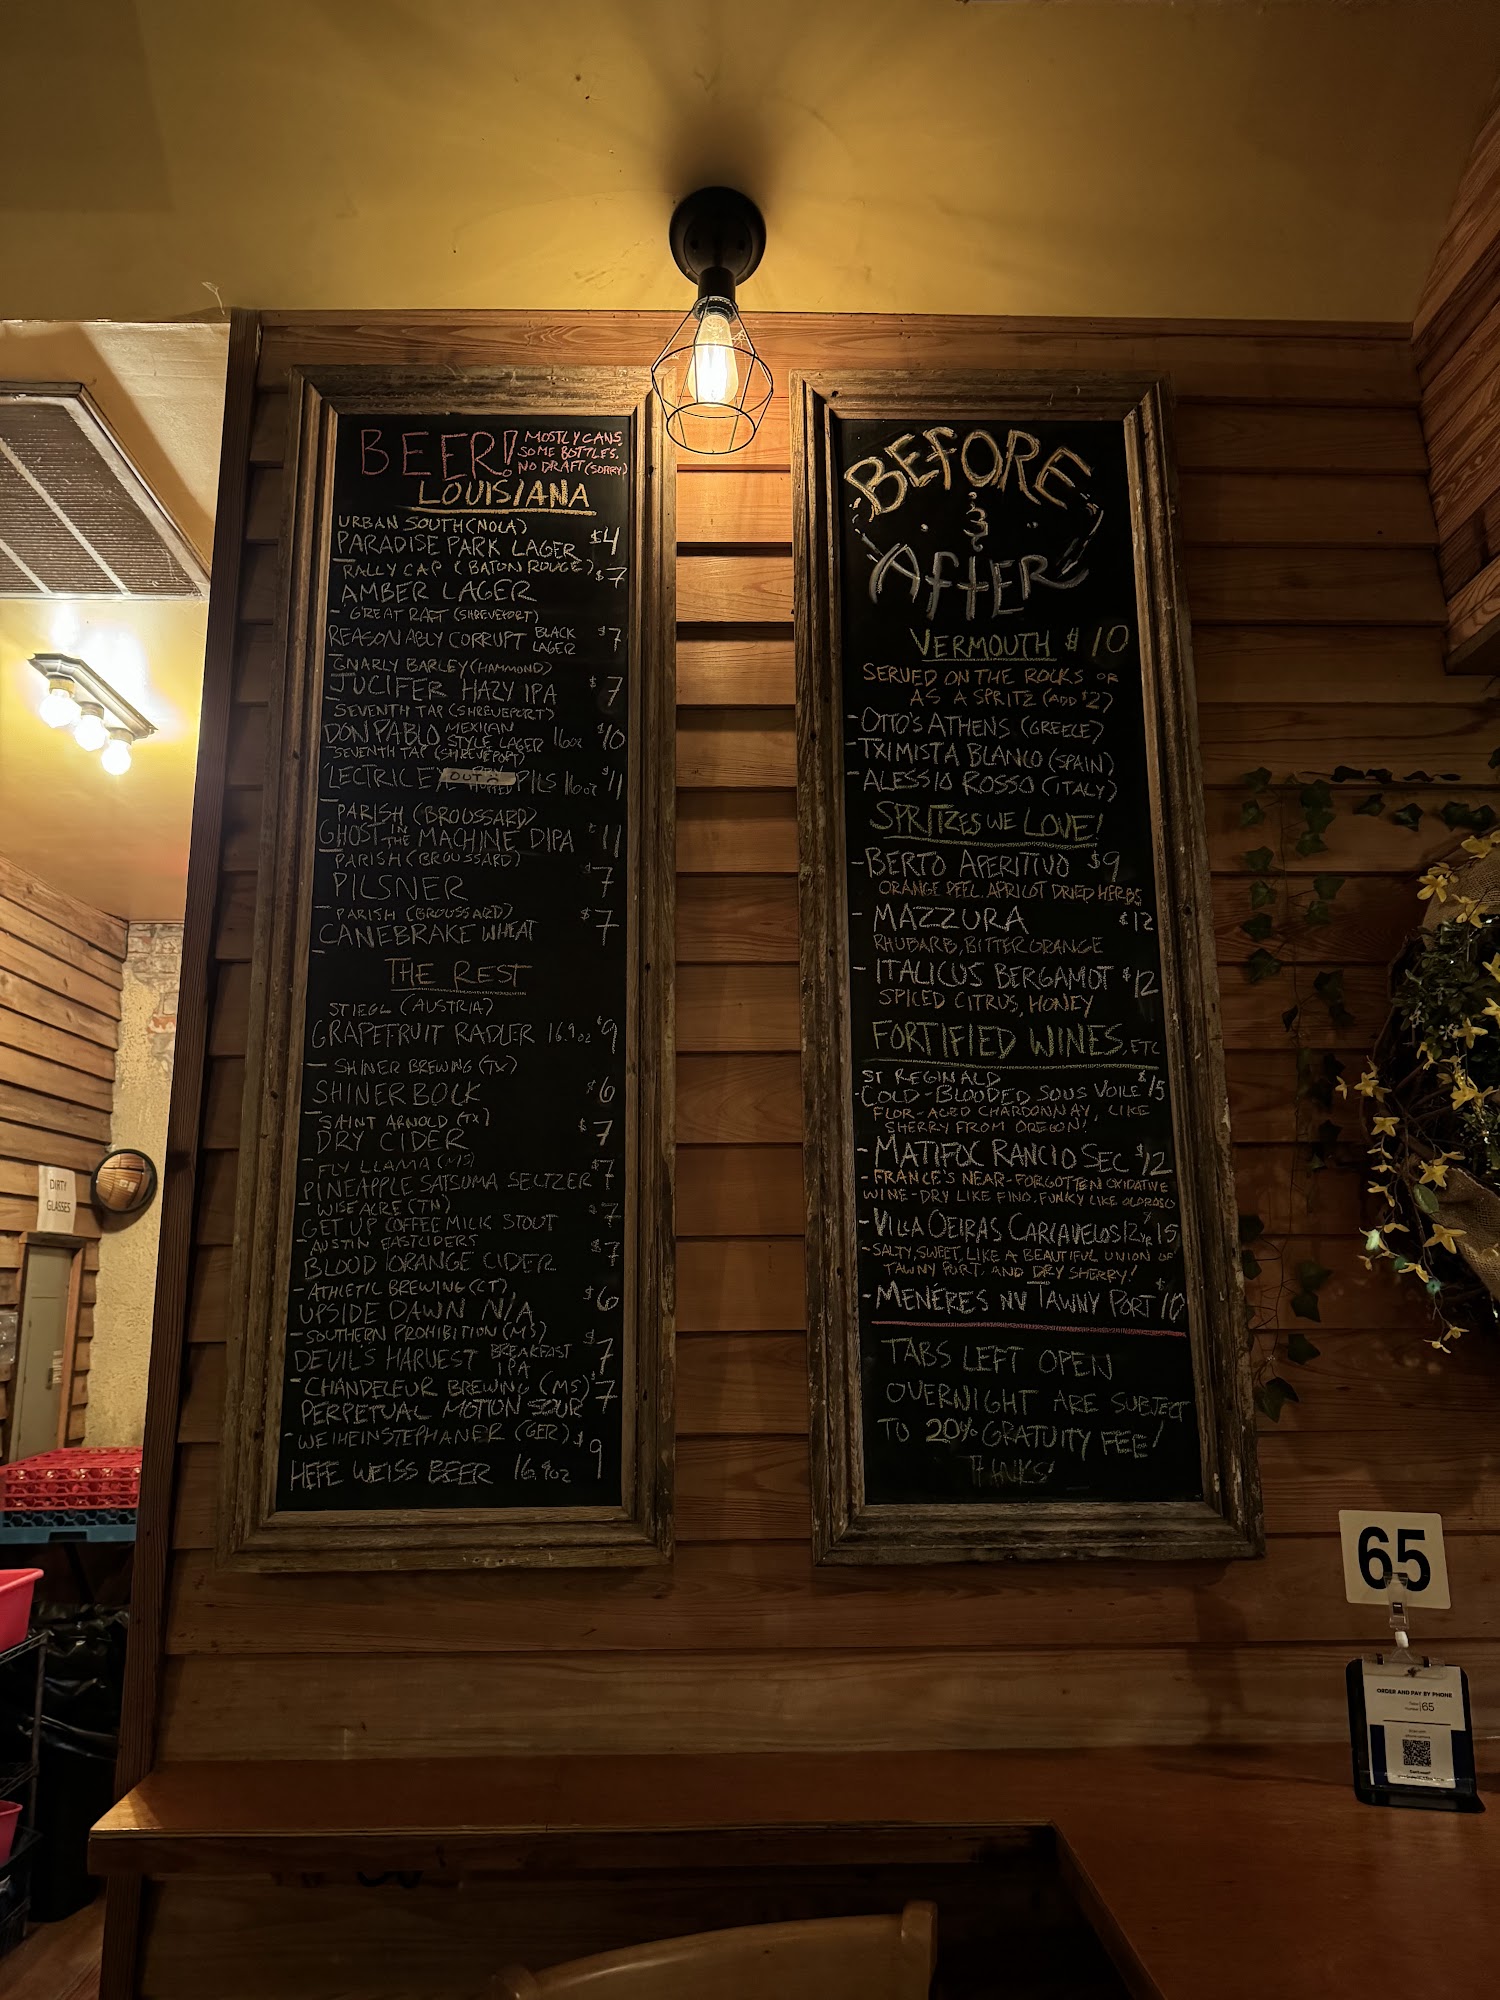 BEER!
MOSTLY CANS,
SOME BOTTLES.
NO DRAFT (SORRY)
LOUISIANA
URBAN SOUTH (NOLA)
PARADISE PARK LAGER $4
RALLY CAP (BATON ROUGE)
AMBER LAGER $7
- GREAT RAFT (SHREVEPORT)
REASONABLY CORRUPT BLACK LAGER $7
GNARLY BARLEY (HAMMOND)
JUCIFER HAZY IPA $7
SEVENTH TAP (SHREVEPORT)
DON PABLO MEXICAN STYLE LAGER 16oz $10
SEVENTH TAP (SHREVEPORT)
'LECTRIC OUT PILS 16oz $11
PARISH (BROUSSARD)
GHOST IN THE MACHINE DIPA $11
PARISH (BROUSSARD)
PILSNER $7
- PARISH (BROUSSARD)
CANEBRAKE WHEAT $7
THE REST
STIEGL (AUSTRIA)
GRAPEFRUIT RADLER 16.9oz $9
- SHINER BREWING (TX)
SHINER BOCK $6
- SAINT ARNOLD (TX)
DRY CIDER $7
- FLY LLAMA (MS)
PINEAPPLE SATSUMA SELTZER $7
- WISEACRE (TN)
GET UP COFFEE MILK STOUT $7
- AUSTIN EASTCIDERS
BLOOD ORANGE CIDER $7
- ATHLETIC BREWING (CT)
UPSIDE DAWN N/A $6
- SOUTHERN PROHIBITION (MS)
DEVIL'S HARVEST BREAKFAST IPA $7
- CHANDELEUR BREWING (MS)
PERPETUAL MOTION SOUR $7
- WEIHEINSTEPHANER (GER)
HEFE WEISS BEER 16.9oz $9
BEFORE
&
AFTER
VERMOUTH $10
SERVED ON THE ROCKS OR
AS A SPRITZ (ADD $2)
- OTTO'S ATHENS (GREECE)
- TXIMISTA BLANCO (SPAIN)
- ALESSIO ROSSO (ITALY)
SPRITZES WE LOVE!
- BERTO APERITIVO $9
ORANGE PEEL, APRICOT DRIED HERBS
- MAZZURA $12
RHUBARB, BITTER ORANGE
- ITALICUS BERGAMOT $12
SPICED CITRUS, HONEY
FORTIFIED WINES, ETC
ST REGINALD
- COLD-BLOODED SOUS VOILE $15
FLOR-AGED CHARDONNAY, LIKE
SHERRY FROM OREGON!
- MATIFOC RANCIO SEC $12
- FRANCE'S NEAR-FORGOTTEN OXIDATIVE
WINE - DRY LIKE FINO, FUNKY LIKE OLOROSO
- VILLA OEIRAS CARCAVELOS 12YR 15
- SALTY, SWEET, LIKE A BEAUTIFUL UNION OF
TAWNY PORT, AND DRY SHERRY!
- MENÉRES NV TAWNY PORT $10
TABS LEFT OPEN
OVERNIGHT ARE SUBJECT
TO 20% GRATUITY FEE!
THANKS!
DIRTY
GLASSES
65
ORDER AND PAY BY PHONE
65